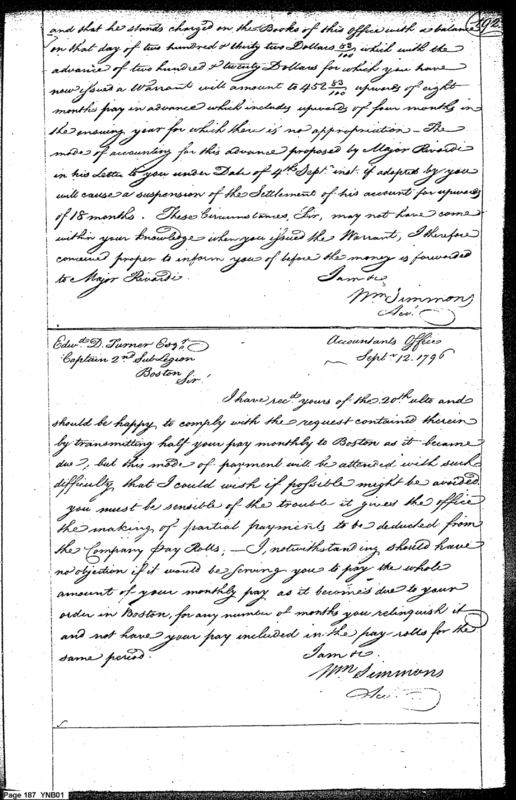 192
and that he stands charged on the Books of this Office with a balance
on that day of two hundred & thirty two Dollars 53/100 which with the
advance of two hundred & twenty Dollars for which you have
now issued a Warrant will amount to 452 53/100 upwards of eight
months pay in advance which includes upwards of four months in
the ensuing year for which there is no appropriation – The
mode of accounting for this advance proposed by Major Rivardi
in his Letter to you under Date of 4th Septr inst. if adopted by you
will cause a suspension of the Settlement of his account for upwards
of 18 months. These Circumstances, Sir, may not have come
within your knowledge when you issued the Warrant, I therefore
conceived proper to inform you of before the money is forwarded
to Major Rivardi
I am &c
Wm Simmons
Acct.
Edwd. D. Turner Esqr
Captain 2nd Sub Legion
Boston
Accountants Office
Septr 12. 1796
Sir
I have recd. yours of the 20th ulto and
should be happy to comply with the request contained therein
by transmitting half your pay monthly to Boston as it became
due, but this mode of payment will be attended with such
difficulty that I could wish if possible might be avoided
you must be sensible of the trouble it gives the office
the making of partial payments to be deducted from
the Company Pay Rolls; – I, notwithstanding should have
no objection if it would be serving you to pay the whole
amount of your monthly pay as it becomes due to your
order in Boston, for any number of months you relinquish it
and not have your pay included in the pay rolls for the
same period.
I am &c.
Wm Simmons
Acct.
Page 187 YNB01